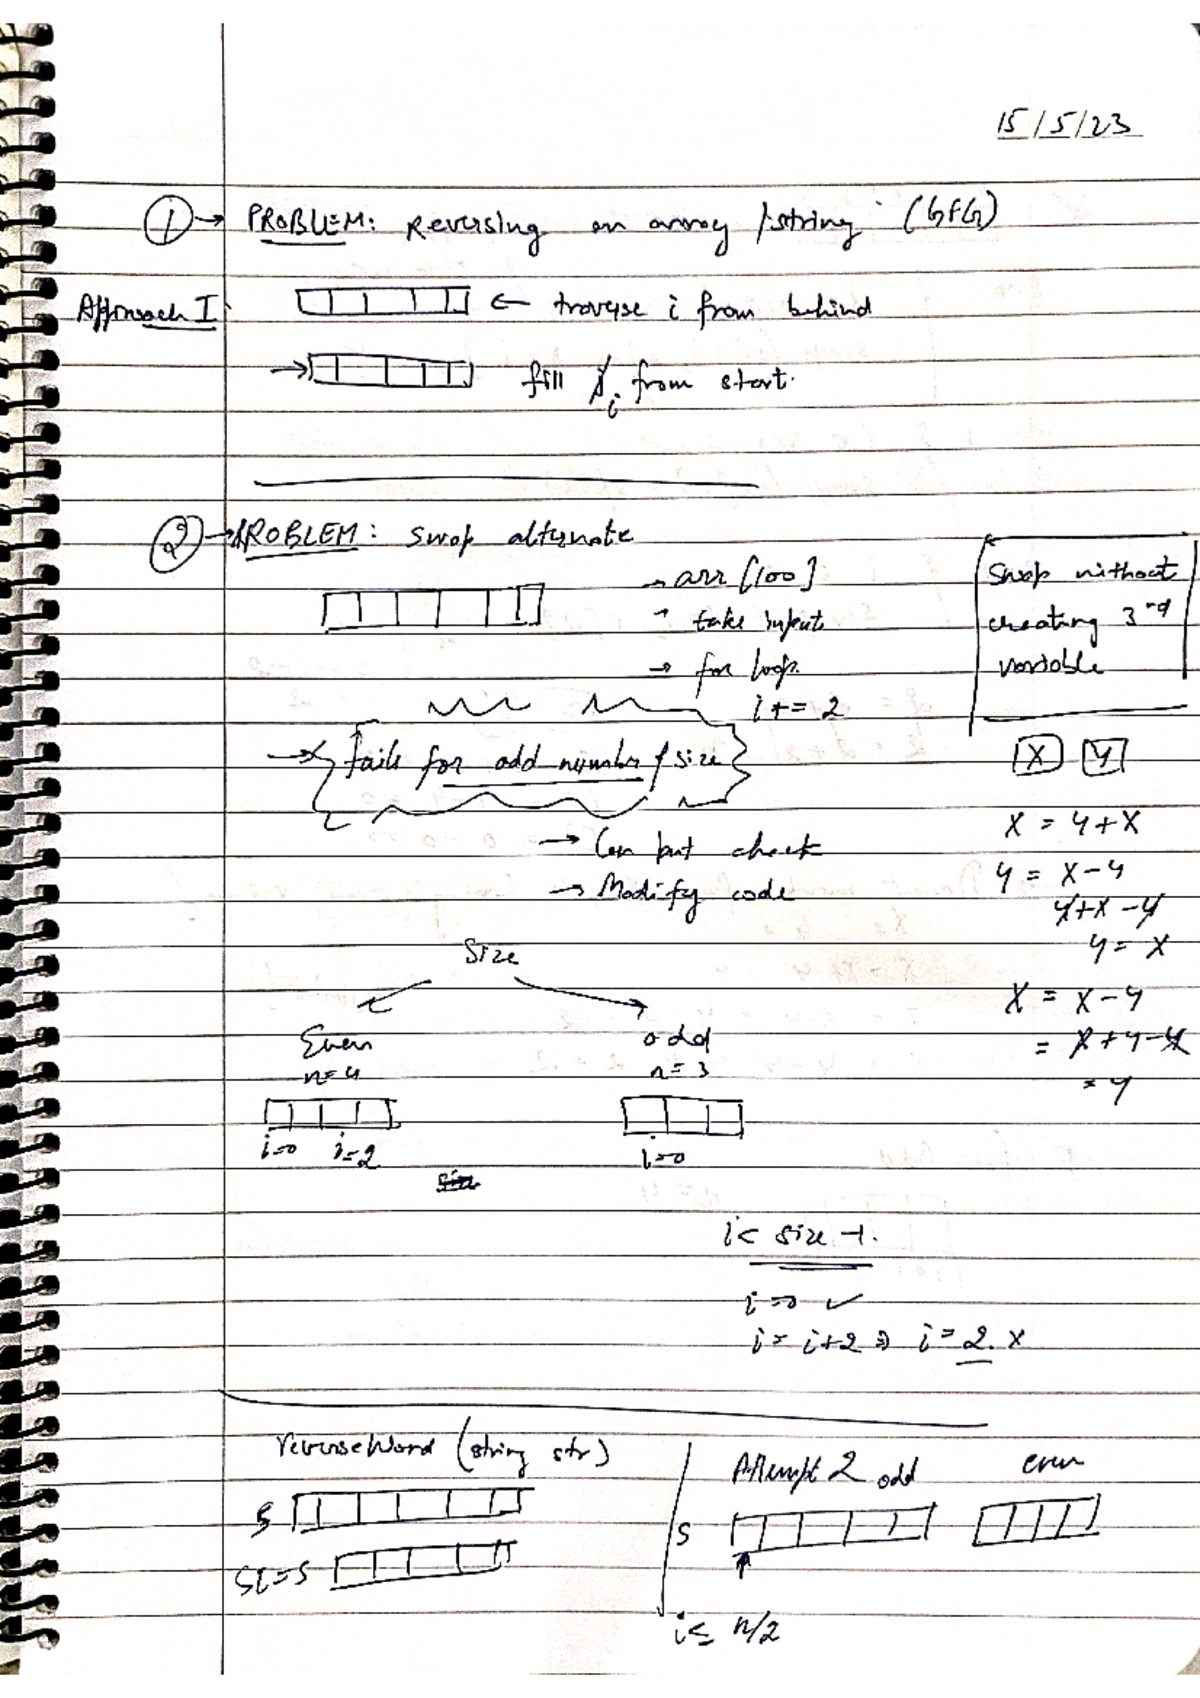 15/5/23
① → PROBLEM: Reversing an array /string (GFG)
Approach I: ← traverse i from behind
→ fill i from start.
② → PROBLEM: Swap alternate
→ arr [100]
→ take input
→ for loop
i += 2
→ fails for odd number of size
→ Can put check
→ Modify code
Swap without
creating 3rd
variable
X Y
X = Y+X
Y = X-Y
Y+X-Y
Y = X
X = X-Y
= X+Y-X
= Y
Size
Even odd
n=4 n=3
i=0 i=2 i=0
size
i< size -1.
i=0 ✓
i= i+2 ⇒ i=2. x
reverseWord (string str)
S
S1=S
Attempt 2 odd even
S
i≤ n/2